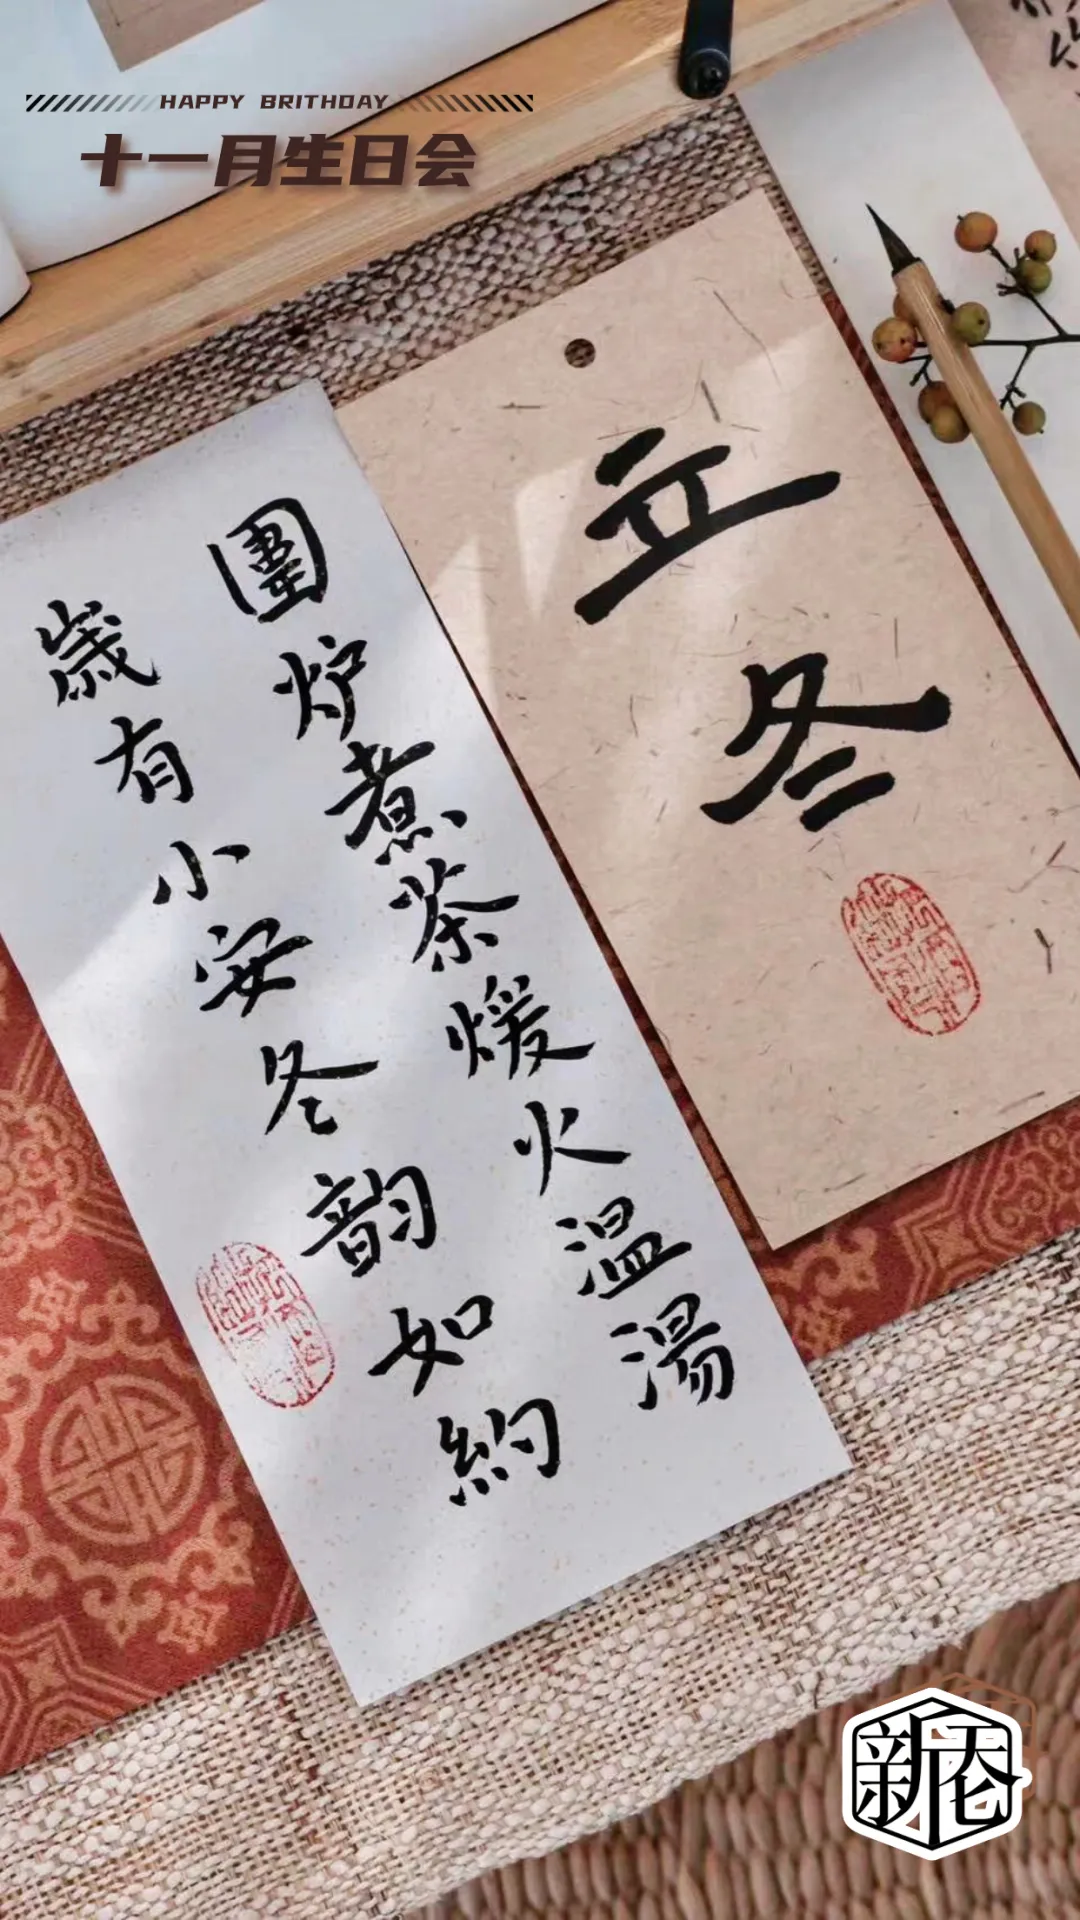 HAPPY BRITHDAY
十一月生日会
立冬
圍炉煮茶煖火温湯
歳有小安冬韵如約
新